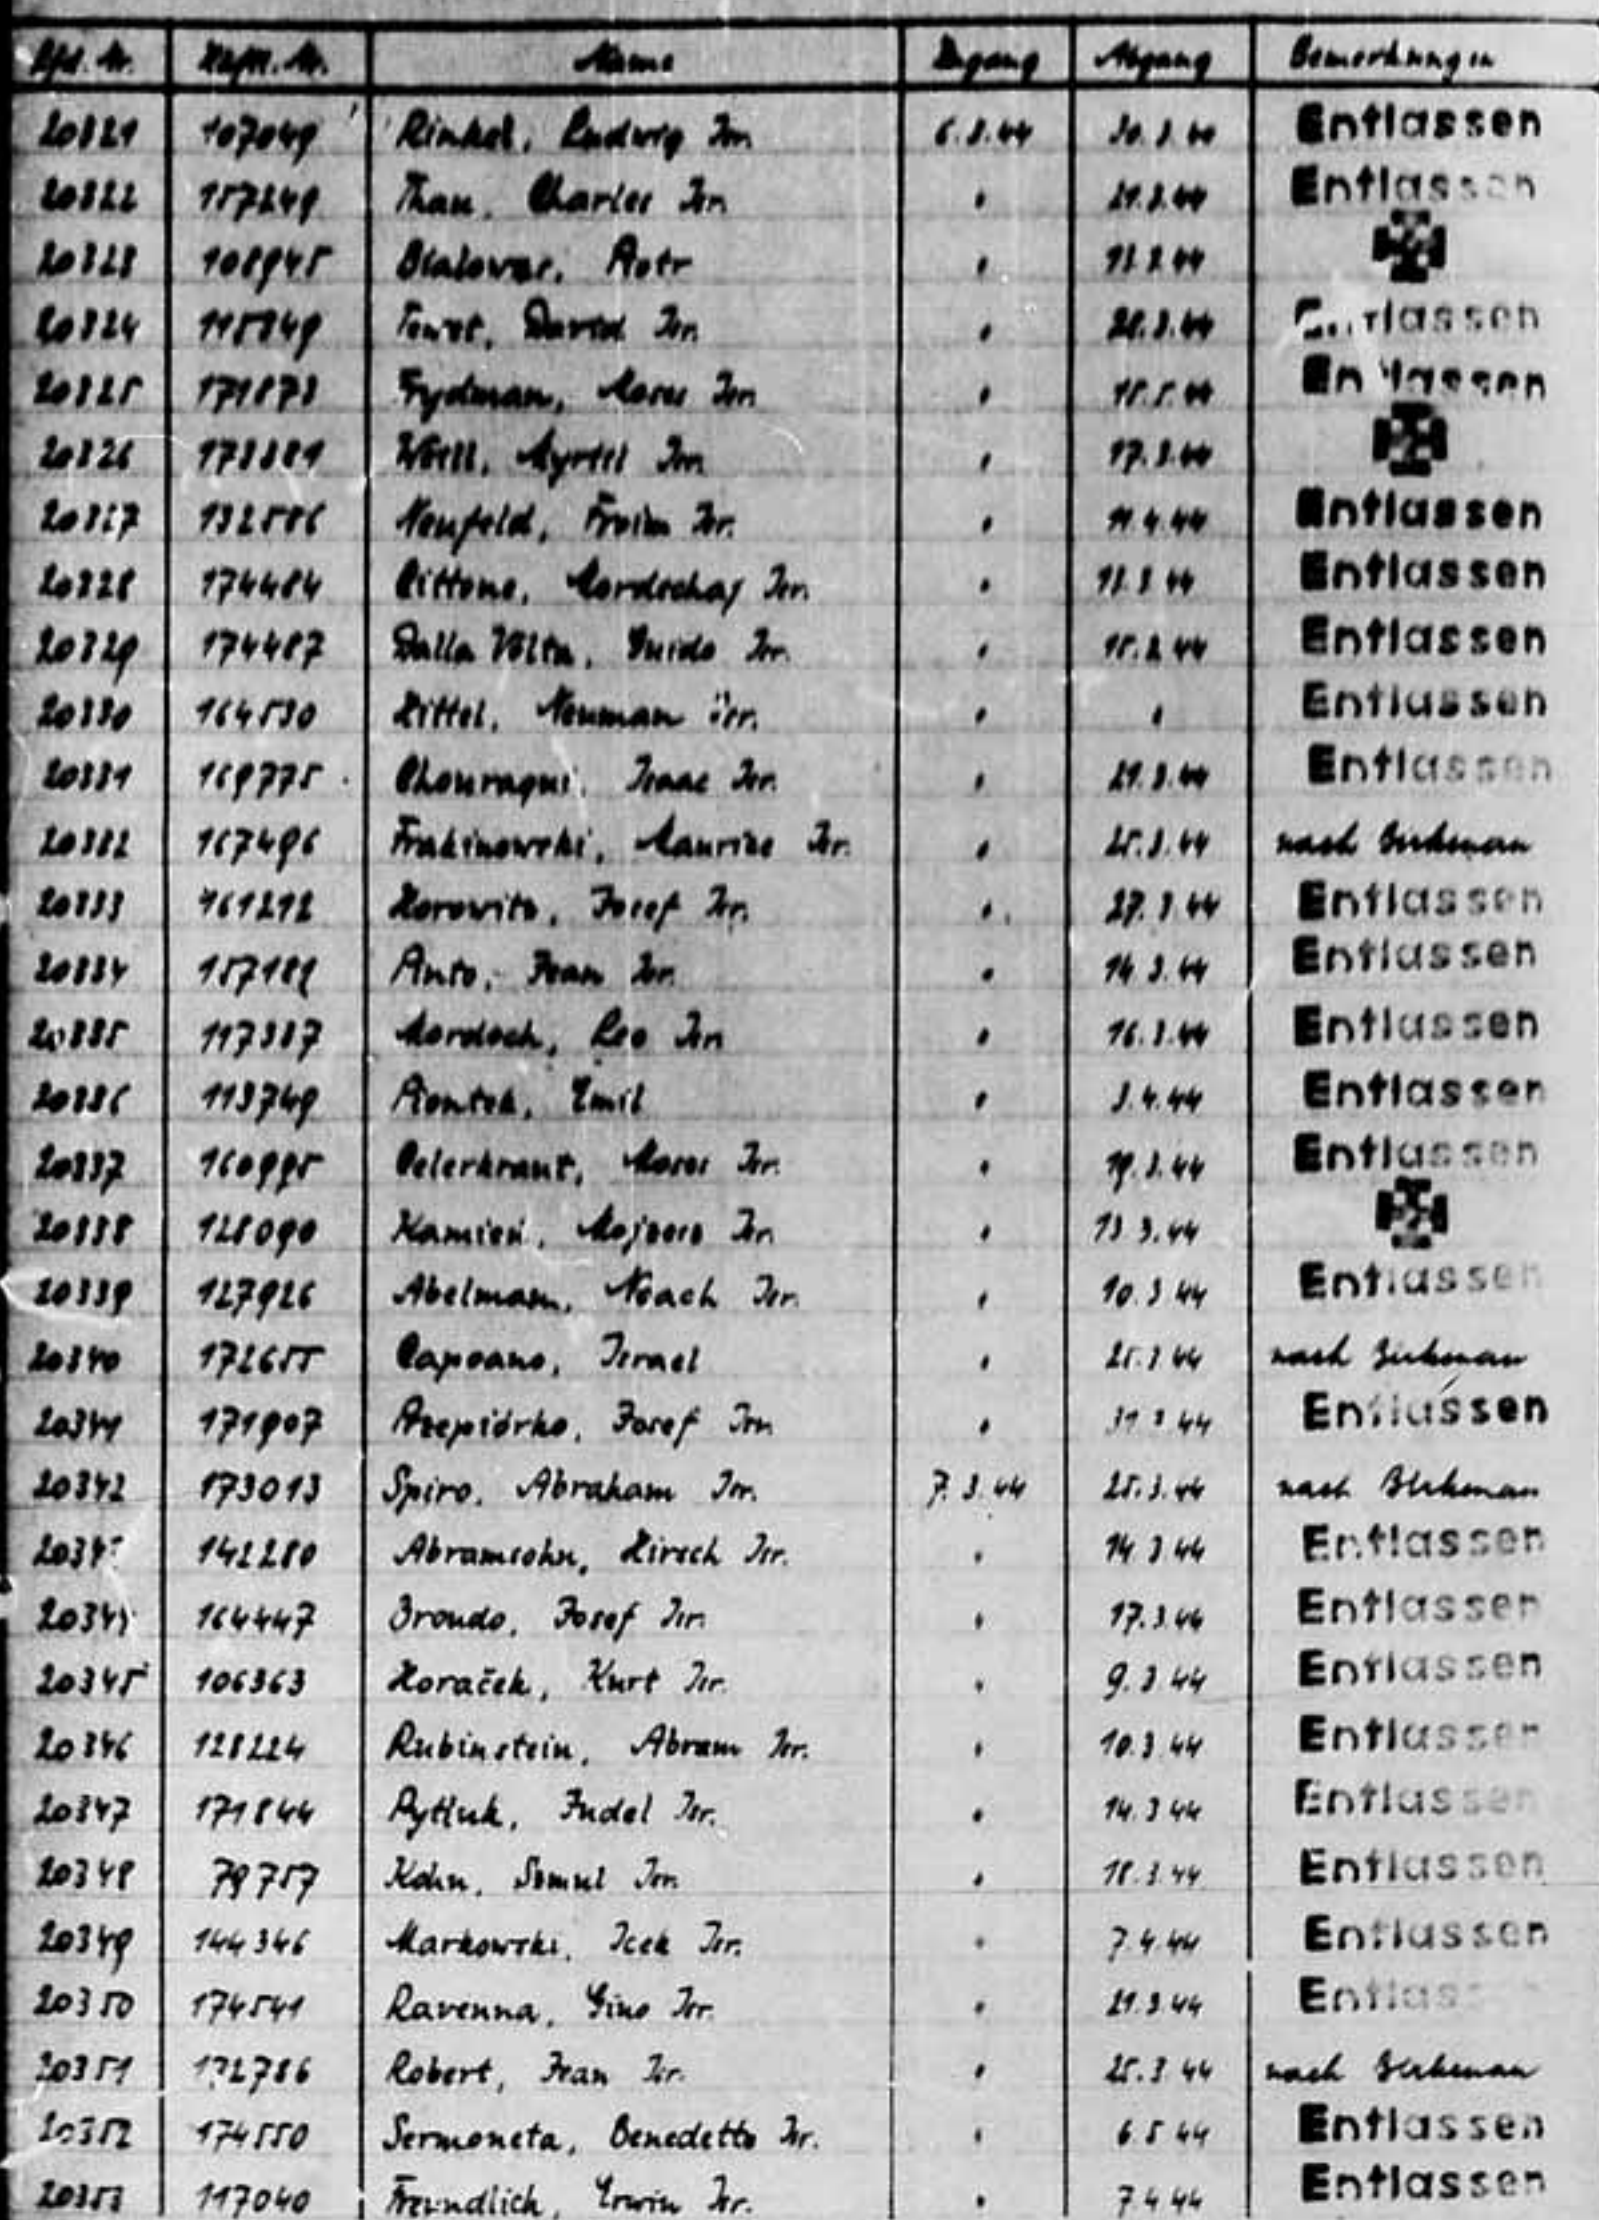 Lfd. Nr. Häftl. Nr. Name Zugang Abgang Bemerkungen
20321 107049 Rinkel, Ludwig Isr. 6.3.44 30.3.44 Entlassen
20322 157249 Thau, Charles Isr. " 21.3.44 Entlassen
20323 108945 Piotr "
20324 David Isr. " Entlassen
20325 171873 Frydman, Moses Isr. " Entlassen
20326 " 17.3.44
20327 132586 Neufeld, Froim Isr. " 11.4.44 Entlassen
20328 174484 Cittone, Mordechaj Isr. " 13.3.44 Entlassen
20329 174487 Dalla Volta, Guido Isr. " Entlassen
20330 164530 Kittel, Neuman Isr. " " Entlassen
20331 169775 Chouraqui, Isaac Isr. " 21.3.44 Entlassen
20332 167496 Frakinowski, Maurice Isr. " 25.3.44 nach Birkenau
20333 161212 Horowitz, Josef Isr. " 27.3.44 Entlassen
20334 Isr. " 14.3.44 Entlassen
20335 117387 Mordoch, Leo Isr. " 16.3.44 Entlassen
20336 113749 Piontek, Emil " 3.4.44 Entlassen
20337 160995 Celerkraut, Moses Isr. " 19.3.44 Entlassen
20338 128090 Kamień, Mojzesz Isr. " 13.3.44
20339 127926 Abelmann, Noach Isr. " 10.3.44 Entlassen
20340 172655 Capoano, Israel " 25.3.44 nach Birkenau
20341 171907 Przepiórko, Josef Isr. " 31.3.44 Entlassen
20342 173013 Spiro, Abraham Isr. 7.3.44 25.3.44 nach Birkenau
142280 Abramsohn, Hirsch Isr. " 14.3.44 Entlassen
164447 Brondo, Josef Isr. " 17.3.44 Entlassen
20345 106363 Horaček, Kurt Isr. " 9.3.44 Entlassen
20346 128224 Rubinstein, Abram Isr. " 10.3.44 Entlassen
20347 171844 Pytluk, Judel Isr. " 14.3.44 Entlassen
20348 79757 Kohn, Samuel Isr. " 18.3.44 Entlassen
20349 144346 Markowski, Icek Isr. " 7.4.44 Entlassen
20350 174541 Ravenna, Gino Isr. " 21.3.44 Entlassen
20351 172786 Robert, Jean Isr. " 25.3.44 nach Birkenau
20352 174550 Sermoneta, Benedetto Isr. " 6.5.44 Entlassen
20353 117040 Freundlich, Erwin Isr. " 7.4.44 Entlassen